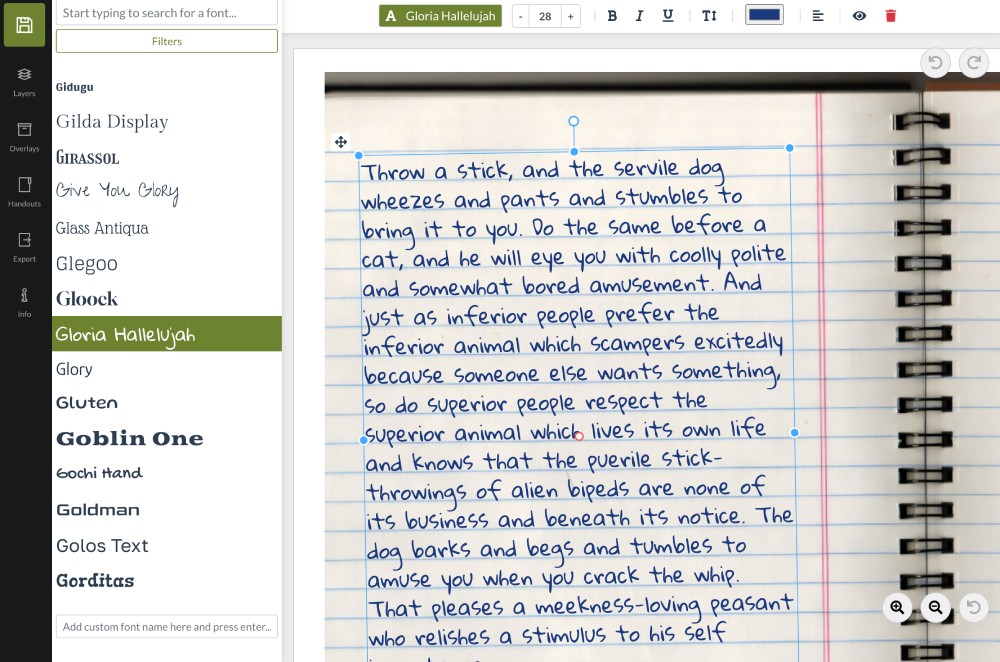 Start typing to search for a font...
Filters
Layers
Overlays
Handouts
Export
Info
Gidugu
Gilda Display
Girassol
Give You Glory
Glass Antiqua
Glegoo
Gloock
Gloria Hallelujah
Glory
Gluten
Goblin One
Gochi Hand
Goldman
Golos Text
Gorditas
Add custom font name here and press enter...
A Gloria Hallelujah - 28 + B I U T
Throw a stick, and the servile dog
wheezes and pants and stumbles to
bring it to you. Do the same before a
cat, and he will eye you with coolly polite
and somewhat bored amusement. And
just as inferior people prefer the
inferior animal which scampers excitedly
because someone else wants something,
so do superior people respect the
superior animal which lives its own life
and knows that the puerile stick-
throwings of alien bipeds are none of
its business and beneath its notice. The
dog barks and begs and tumbles to
amuse you when you crack the whip.
That pleases a meekness-loving peasant
who relishes a stimulus to his self